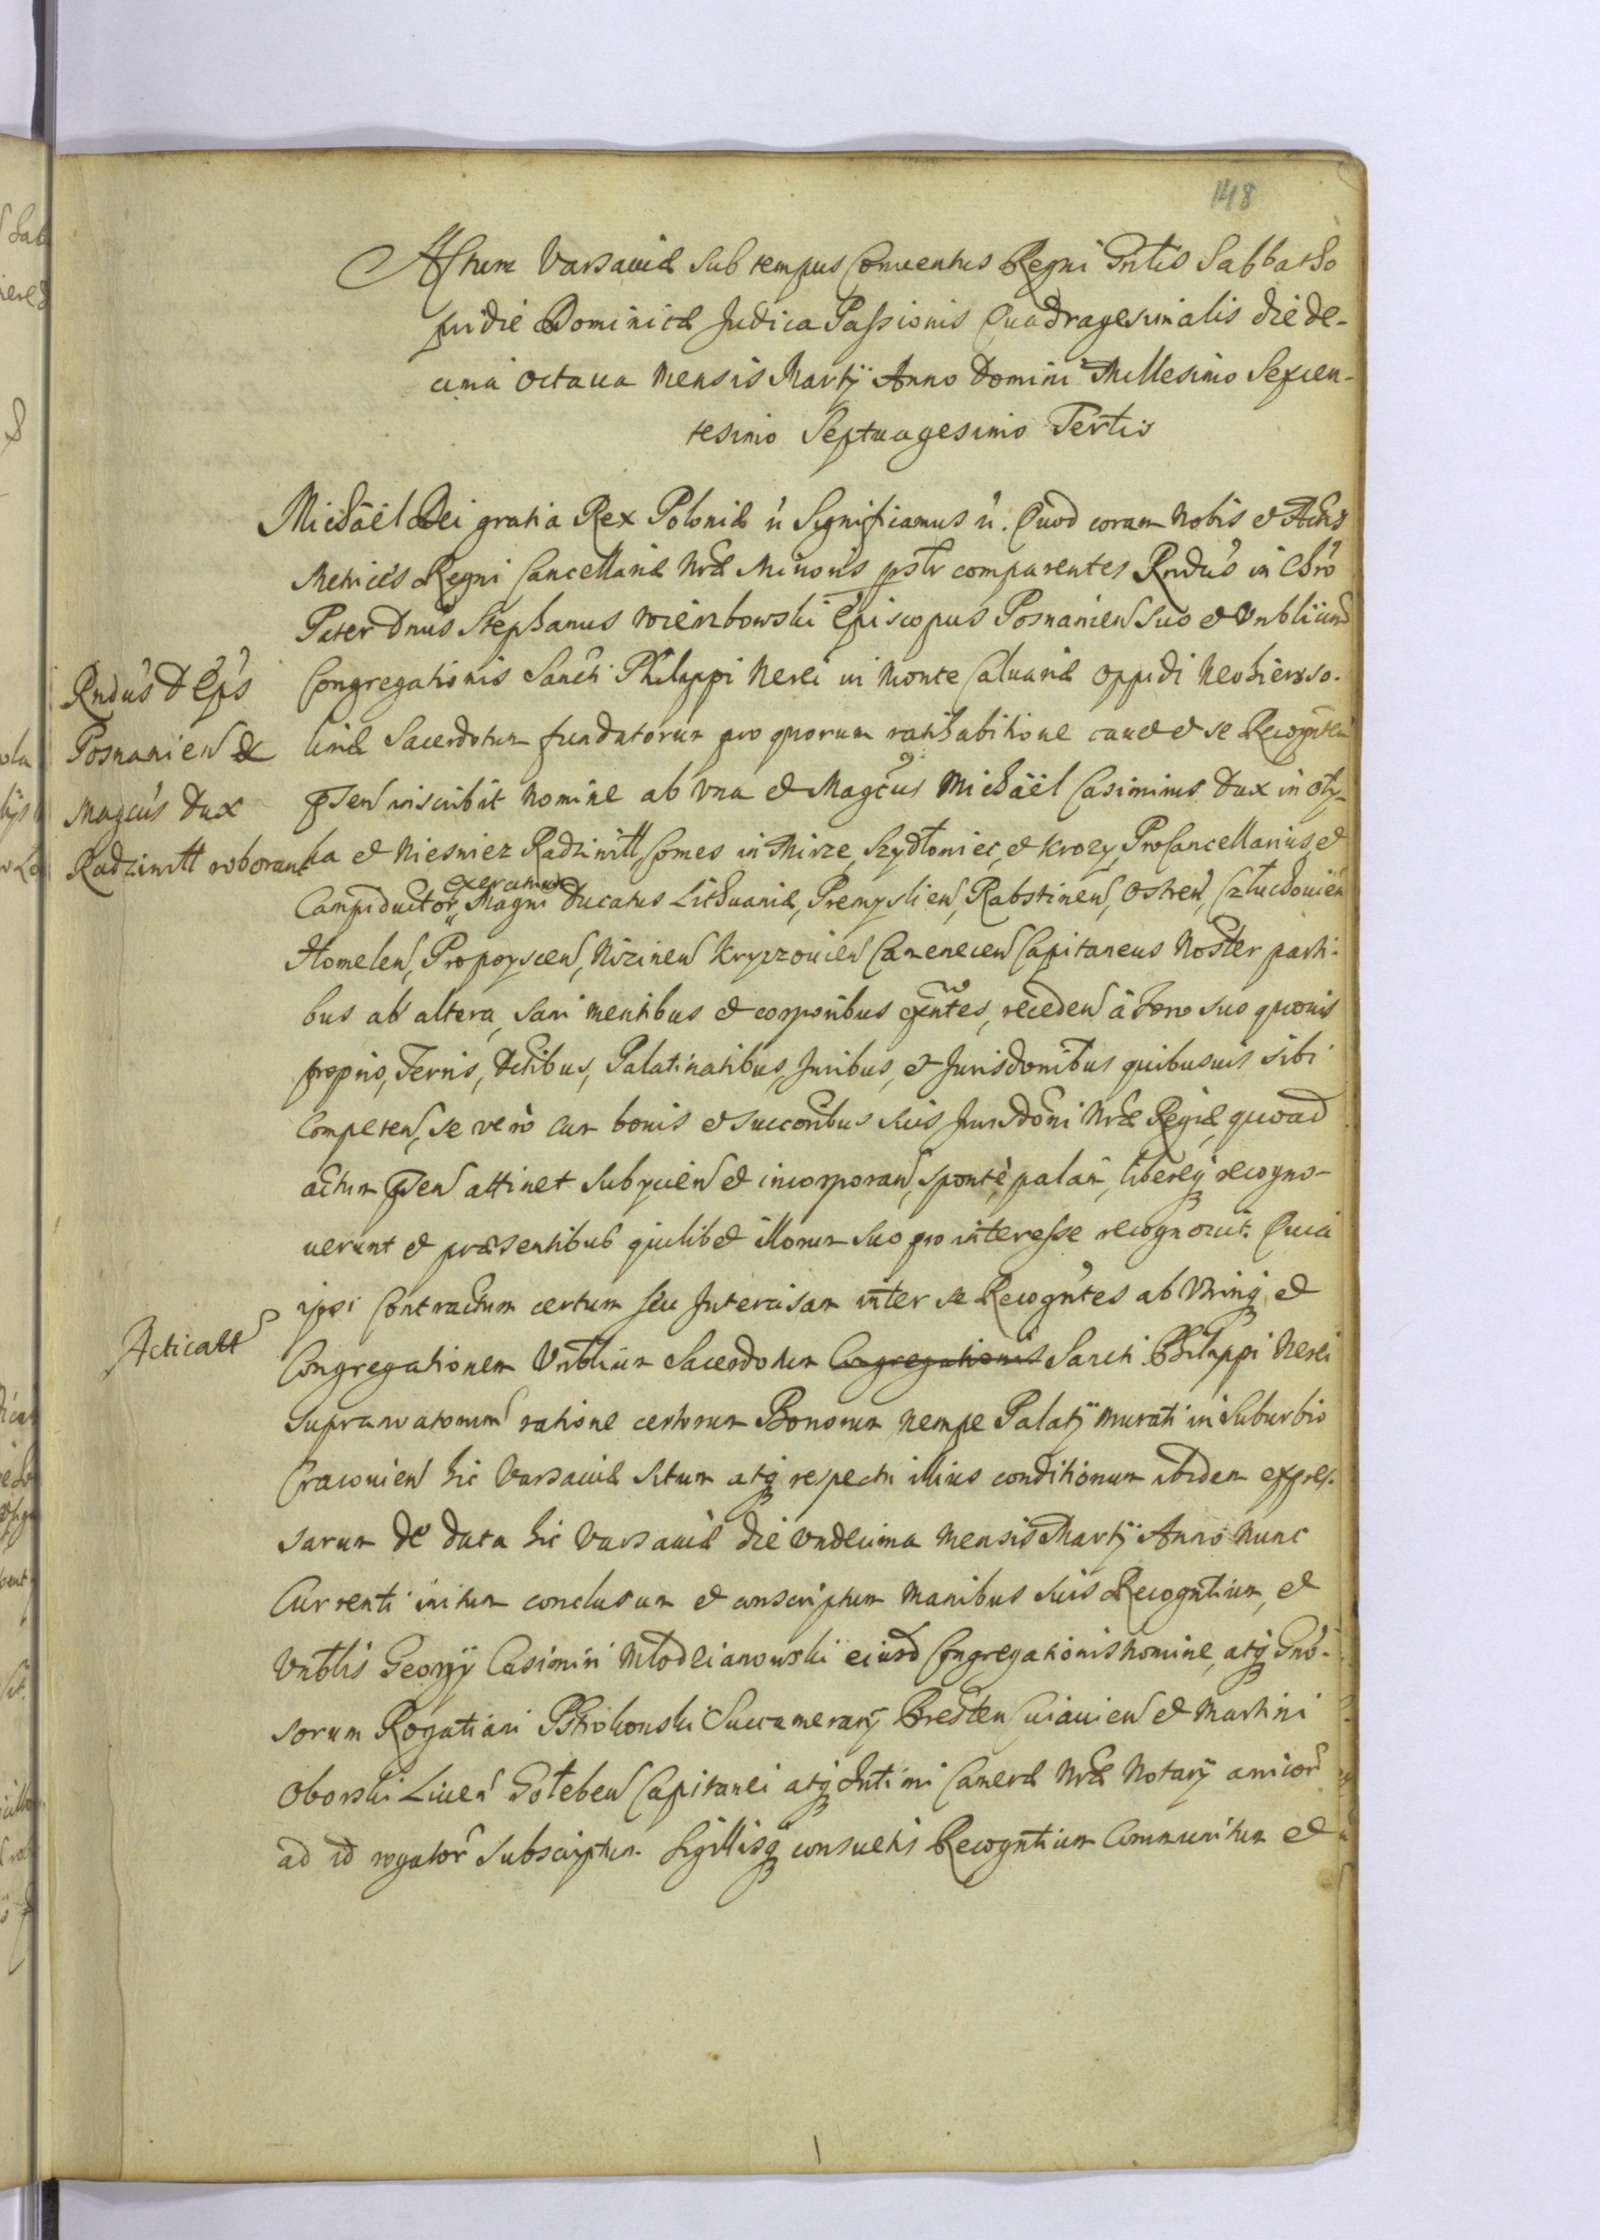 148
Actum Varsauiæ sub tempus Conuentus Regni Gnlis Sabbatho
pridie Dominicæ Judica Passionis Quadragesimalis die de-
cima octaua Mensis Martij Anno Domini Millesimo Sexcen-
tesimo Septuagesimo Tertio
Michäel Dei gratia Rex Poloniæ Significamus Quod coram Nobis et Actis
Metrices Regni Cancellariæ Nræ Minoris pslr comparentes Rndus in Chro
Pater Dnus Stephanus Wierzbowski Episcopus Posnanien Suo et Vnblium
Congregationis Sancti Philippi Nerei in Monte Caluariæ oppidi Neohieroso-
limæ Sacerdotum fundatorum pro quorum ratihabitione cauet et se Recognten
inscribit Nomine ab vna et Magcus Michäel Casimirus Dux in Oly-
ka et Nieswiez Radziwiłł, Comes in Mirze, Szydłoniec, et Krozy, ProCancellarius, et
Campiductor exercituum Magni Ducatus Lithuaniæ, Premyslien, Rabstinen, Ostren, Człuchouien
Homelen, Propoyscen, Nizinen Kryczouien Camenecen Capitaneus Noster parti-
bus ab altera, sani mentibus et corporibus exntes, receden à Foro suo quouis
proprio, Terris, Dctibus, Palatinatibus, Juribus, et Jurisdonibus quibusuis sibi
Competen, se vero cum bonis et succoribus suis Jurisdoni Nræ Regiæ, quoad
actum attinet Subycien et incorporan, sponte, palam, libereq recogno-
uerunt et præsentibus quilibet illorum suo pro interesse recognoscit. Quia
ipsi Contractum certum seu Intercisam inter se Recogntes ab Vtrinq et
Congregationem Vnblium Sacerdotum Congregationis Sancti Philippi Nerei
ratione certorum Bonorum nempe Palatij murati in Suburbio
Cracouien hic Varsauiæ Situm atq respectu illius conditionum ibidem expres-
sarum de data hic Varsauiæ die vndecima Mensis Martij Anno Nunc
Currenti initum conclusum et conscriptum Manibus suis Recogntium, et
Vnblis Georgij Casimiri Młodzianowski eiusd Congregationis nomine, atq Gnō-
sorum Rogatiani Pstrokonski Succamerarij Bresten Cuiauien et Martini
Oborski Liuen Gołeben Capitanei atq Intimi Cameræ Nræ Notarij amicor
ad id rogator Subscriptum Sigillisq consuetis Recogntium Communitum et
Rndus D Eps
Posnanien &
Magcus Dux
Radziwiłł roborant
Acticatt